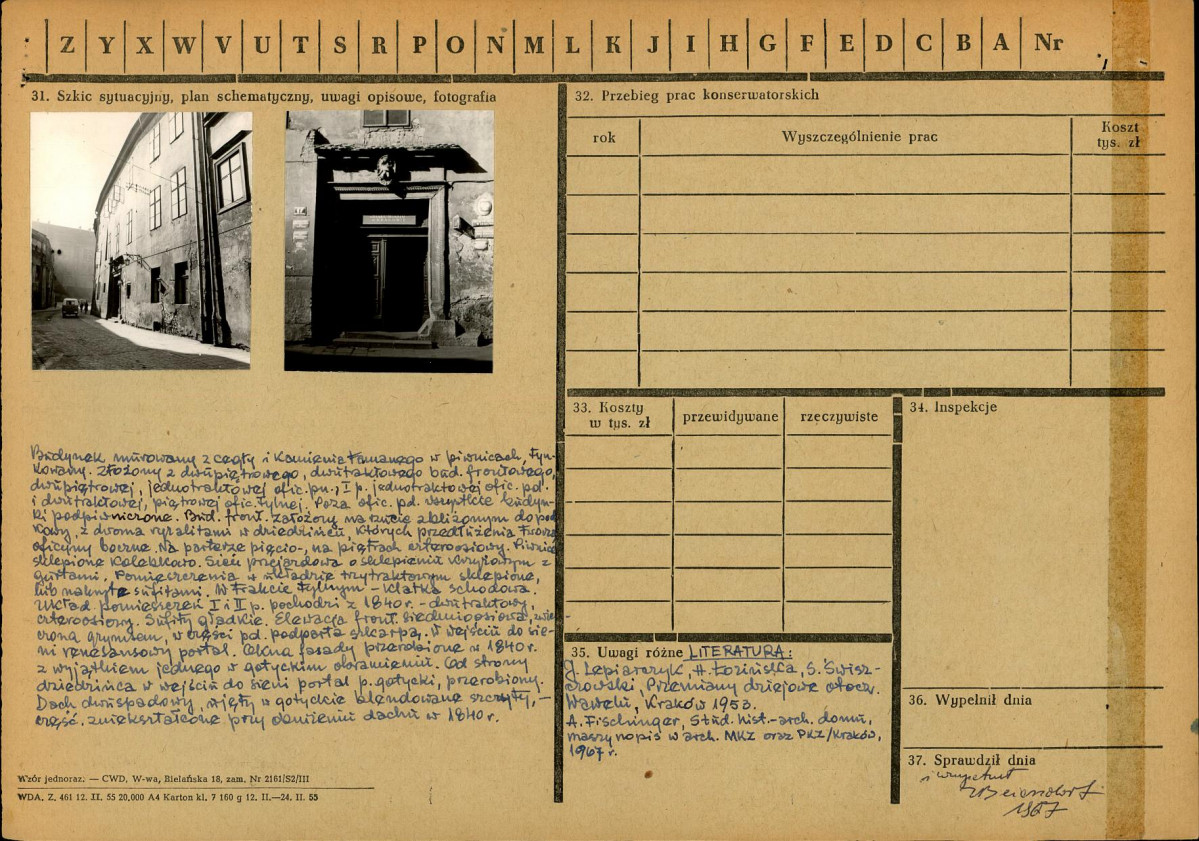 Z Y X W V U T S R P O N M L K J I H G F E D C B A Nr
31. Szkic sytuacyjny, plan schematyczny, uwagi opisowe, fotografia
Budynek murowany z cegły i kamienia łamanego w piwnicach, tyn-
kowany. Złożony z dwupiętrowego, dwutraktowego bud. frontowego,
dwupiętrowej, jednotraktowej ofic. pn., I p. jednotraktowej ofic. pd.
i dwutraktowej, piętrowej ofic. tylnej. Poza ofic. pd. wszystkie budyn-
ki podpiwniczone. Bud. front. założony na rzucie zbliżonym do pod
kowy, z dwoma ryzalitami w dziedzińcu, których przedłużenia tworzą
oficyny boczne. Na parterze pięcio-, na piętrach czteroosiowy. Piwnice
sklepione kolebkowo. Sień przejazdowa o sklepieniu krzyżowym z
gurtami. Pomieszczenia w układzie trzytraktowym sklepione,
lub nakryte sufitami. W trakcie tylnym – klatka schodowa.
Układ pomieszczeń I i II p. pochodzi z 1840 r. – dwutraktowy,
czteroosiowy. Sufity gładkie. Elewacja front. siedmioosiowa, zwień-
czona gzymsem, w części pd. podparta szkarpą. W wejściu do sie-
ni renesansowy portal. Okna fasady przerobione w 1840 r.
z wyjątkiem jednego w gotyckim obramieniu. Od strony
dziedzińca w wejściu do sieni portal p. gotycki, przerobiony.
Dach dwuspadowy, ujęty w gotyckie blendowane szczyty, –
część. zniekształcone przy obniżeniu dachu w 1840 r.
Wzór jednoraz. — CWD, W-wa, Bielańska 18, zam. Nr 2161/S2/III
WDA, Z, 461 12. II. 55 20,000 A4 Karton kl. 7 160 g 12. II.—24. II. 55
32. Przebieg prac konserwatorskich
rok Wyszczególnienie prac Koszt
tys. zł
33. Koszty
w tys. zł
przewidywane rzeczywiste
34. Inspekcje
35. Uwagi różne LITERATURA:
J. Lepiarczyk, H. Łozińska, S. Świsz-
czowski, Przemiany dziejowe otocz.
Wawelu, Kraków 1953.
A. Fischinger, Stud. hist.-arch. domu,
maszynopis w arch. MKZ oraz PKZ/Kraków,
1967 r.
36. Wypełnił dnia
37. Sprawdził dnia
1967